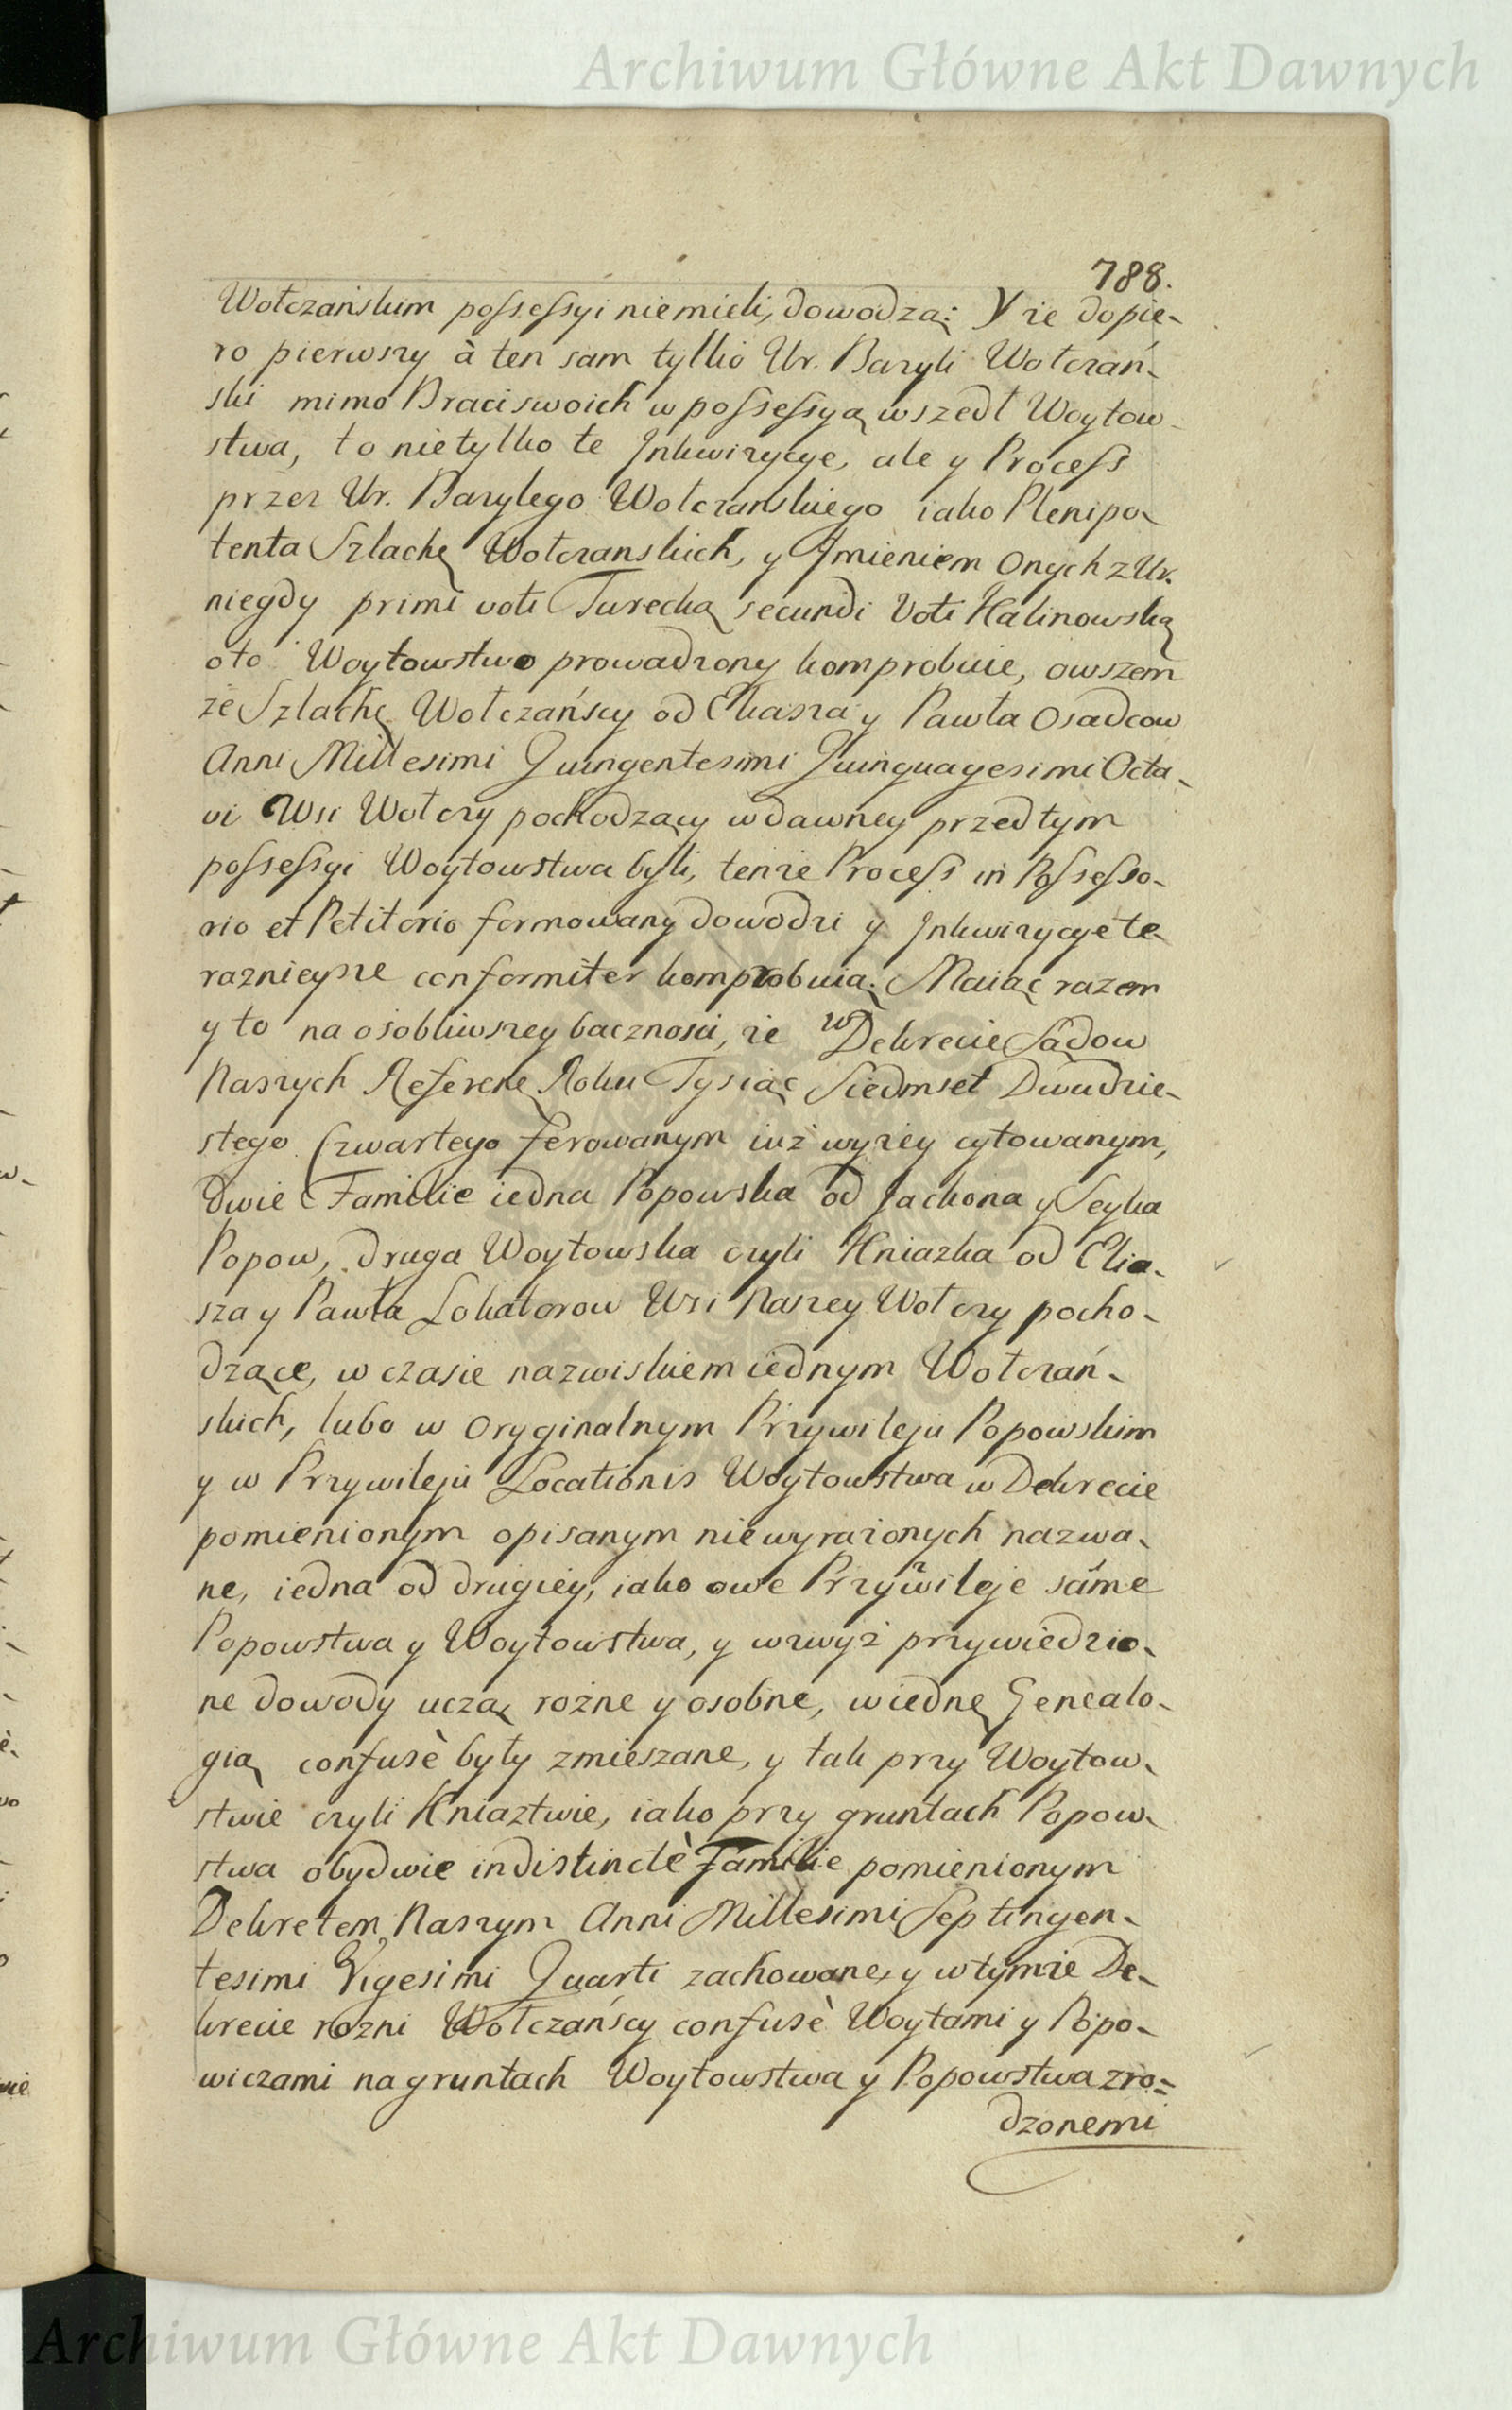 Archiwum Główne Akt Dawnych
788.
Wołczańskim possessyi niemieli, dowodzą: Y że dopie-
ro pierwszy à ten sam tylko Ur. Bazyli Wołczań-
ski mimo Braci swoich w possessyą wszedł Woytow-
stwa, to nietylko te Inkwizycye, ale y Process
przez Ur. Bazylego Wołczanskiego iako Plenipo-
tenta Szlachę Wołczanskich, y Jmieniem Onych z Ur.
niegdy primi voti Turecką secundi Voti Kalinowską
oto Woytowstwo prowadzony komprobuie, owszem
że Szlachę Wołczańscy od Eliasza y Pawła Osadcow
Anni Millesimi Quingentesimi Quinquagesimi Octa-
vi Wsi Wołczy pochodzący w dawney przedtym
possessyi Woytowstwa byli, tenże Process in Possesso-
rio et Petitorio formowany dowodzi y Inkwizycye te-
raznieysze conformiter komprobuią. Maiąc razem
y to na osobliwszey bacznosci, że w Dekrecie Sądow
Naszych Referen̄ Roku Tysiąc Siedmset Dwudzie-
stego Czwartego ferowanym iuż wyżey cytowanym,
Dwie Familie iedna Popowska od Jachona y Seńka
Popow, druga Woytowska czyli Kniazka od Elia-
sza y Pawła Lokatorow Wsi Naszey Wołczy pocho-
dzące, w czasie nazwiskiem iednym Wołczań-
skich, lubo w Oryginalnym Przywileju Popowskim
y w Przywileju Locationis Woytowstwa w Dekrecie
pomienionym opisanym niewyrażonych nazwa-
ne, iedna od drugiey, iako owe Przywileje sáme
Popowstwa y Woytowstwa, y wzwyż przywiedzio-
ne dowody uczą rożne y osobne, w iednę Genealo-
gią confusè były zmieszane, y tak przy Woytow-
stwie czyli Kniaztwie, iako przy gruntach Popow-
stwa obydwie indistinctè Familie pomienionym
Dekretem Naszym Anni Millesimi Septingen-
tesimi Vigesimi Quarti zachowane, y w tymże De-
krecie rozni Wołczańscy confusè Woytami y Popo-
wiczami na gruntach Woytowstwa y Popowstwa zro-
dzonemi
Archiwum Główne Akt Dawnych